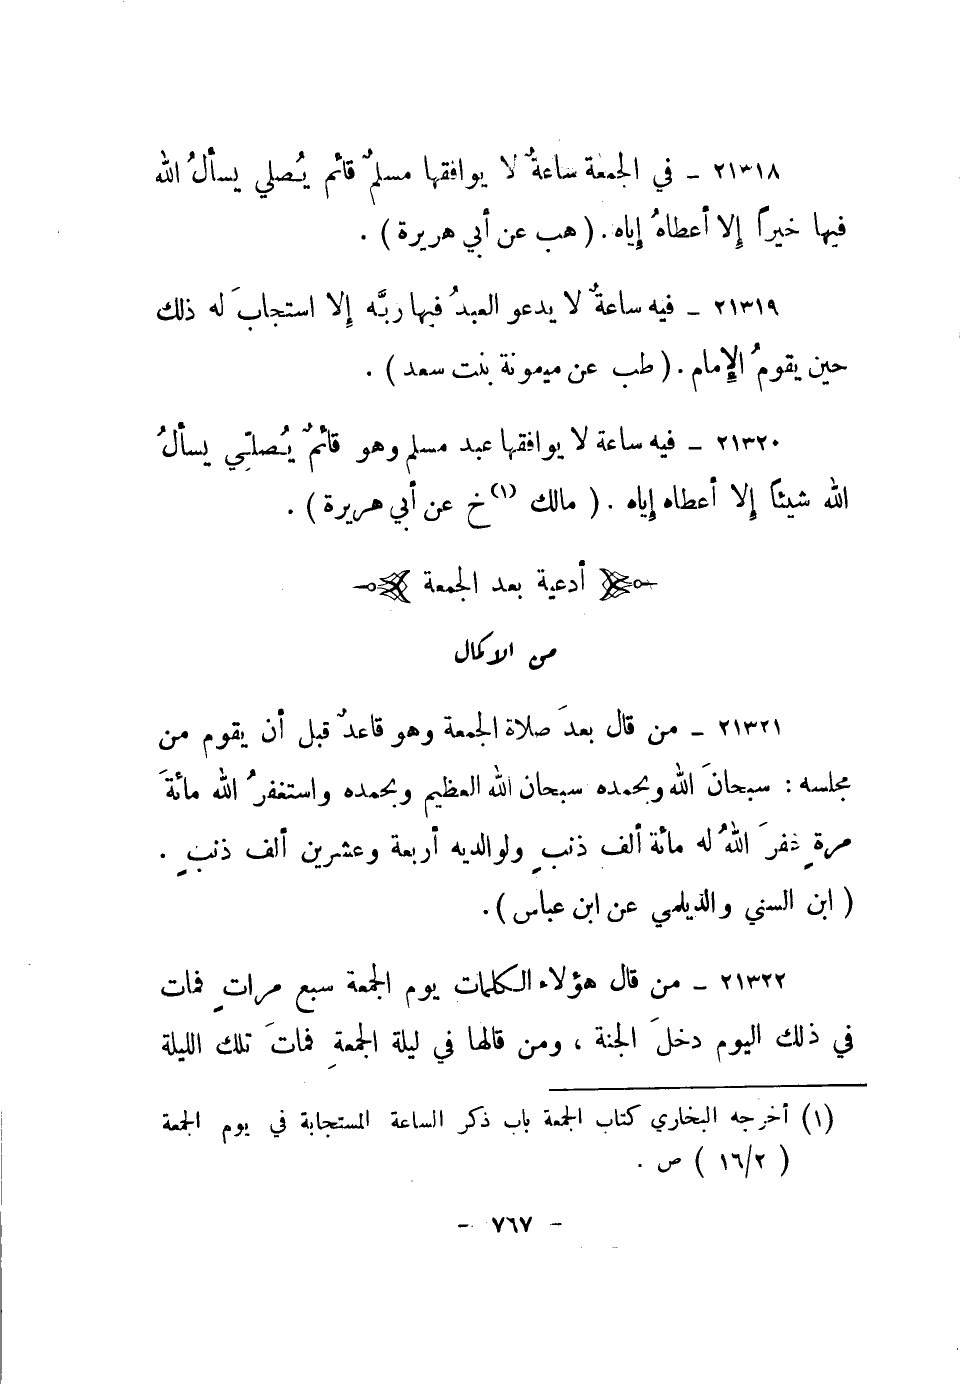 ٢١٣١٨ – في الجمعة ساعةٌ لا يوافقها مسلمٌ قائم يُصلي يسألُ الله
فيها خيراً إلا أعطاهُ إياه . ( هب عن أبي هريرة ) .
٢١٣١٩ – فيه ساعةٌ لا يدعو العبدُ فيها ربَّه إلا استجابَ له ذلك
حين يقومُ الإمام . ( طب عن ميمونة بنت سعد ) .
٢١٣٢٠ – فيه ساعة لا يوافقها عبد مسلم وهو قائمٌ يُصلّي يسألُ
الله شيئاً إلا أعطاه إياه . ( مالك (١) خ عن أبي هريرة ) .
أدعية بعد الجمعة
من الاكمال
٢١٣٢١ – من قال بعدَ صلاة الجمعة وهو قاعدٌ قبل أن يقوم من
مجلسه : سبحانَ الله وبحمده سبحان الله العظيم وبحمده واستغفرُ الله مائةَ
مرةٍ غفرَ اللهُ له مائة ألف ذنبٍ ولوالديه أربعة وعشرين ألف ذنبٍ .
( ابن السني والديلمي عن ابن عباس ) .
٢١٣٢٢ – من قال هؤلاء الكلمات يوم الجمعة سبع مراتٍ فمات
في ذلك اليوم دخلَ الجنة ، ومن قالها في ليلة الجمعةِ فماتَ تلك الليلة
(١) أخرجه البخاري كتاب الجمعة باب ذكر الساعة المستجابة في يوم الجمعة
( ١٦/٢ ) ص .
– ٧٦٧ –